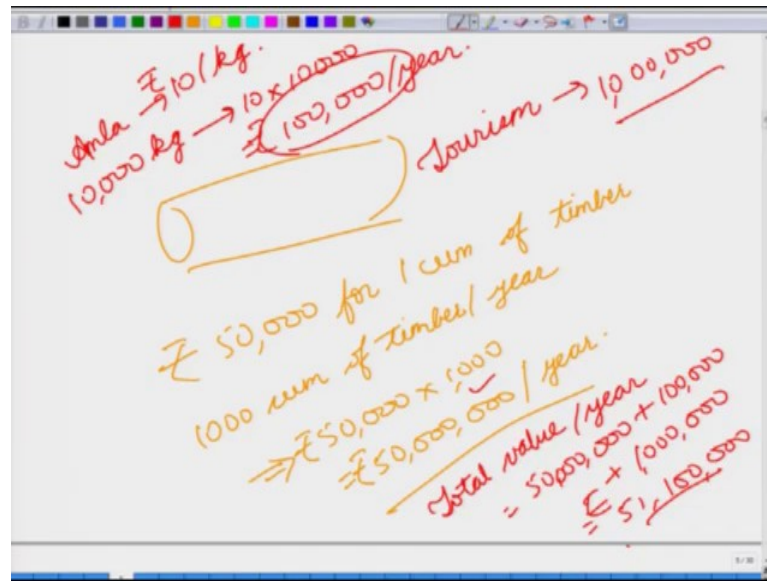 Amla → ₹10/kg.
10,000 kg → 10 × 10000
= ₹ 100,000/year.
Tourism → 10,00,000
₹ 50,000 for 1 cum of timber
1000 cum of timber/year
⇒ ₹50,000 × 1,000
= ₹50,000,000/year.
Total value/year
= 50,000,000 + 100,000
+ 1,000,000
= 51,100,000
5/30